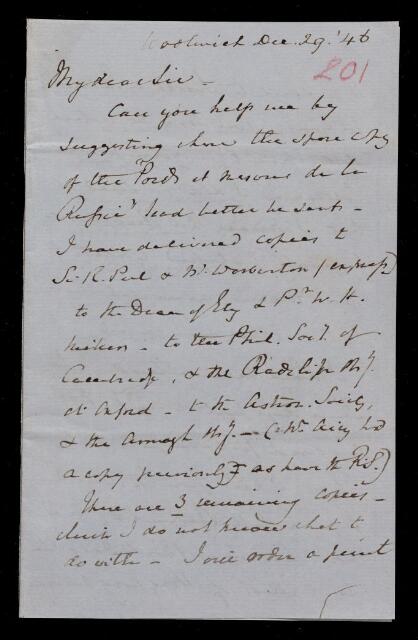 Woolwich Dec. 29. '46
201
My dear Sir –
Can you help me by
suggesting where the spare copy
of the "Poids et mesures de la
Russie" had better be sent –
I have delivered copies to
Sir R. Peel & Mr Warburton (engaged)
to the Dean of Ely & Pr. W. H.
Miller – to the Phil. Socy. of
Cambridge, & the Radcliffe Oby.
at Oxford – to the Astron. Society,
& the Armagh Oby. – (& Mr Airy had
a copy previously as have the R.S.)
There are 3 remaining copies –
which I do not know what to
do with – I will order a